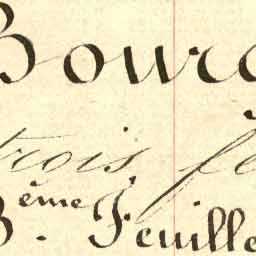 Bourg
trois fe
3.ème Feuille